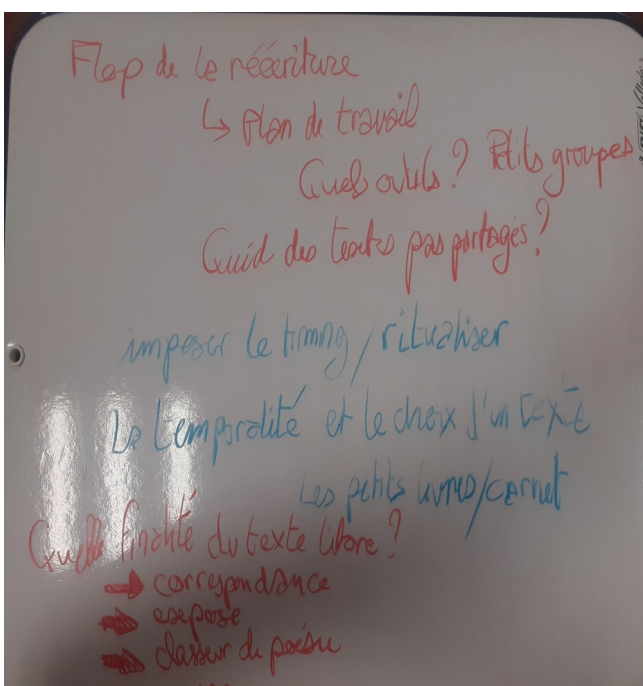 Flop de la réécriture
↳ Plan de travail
Quels outils? Petits groupes
Quid des textes pas partagés?
imposer le timing/ritualiser
La temporalité et le choix d'un texte
Les petits livres/carnet
Quelle finalité du texte libre?
→ correspondance
→ exposé
→ classeur de poésie